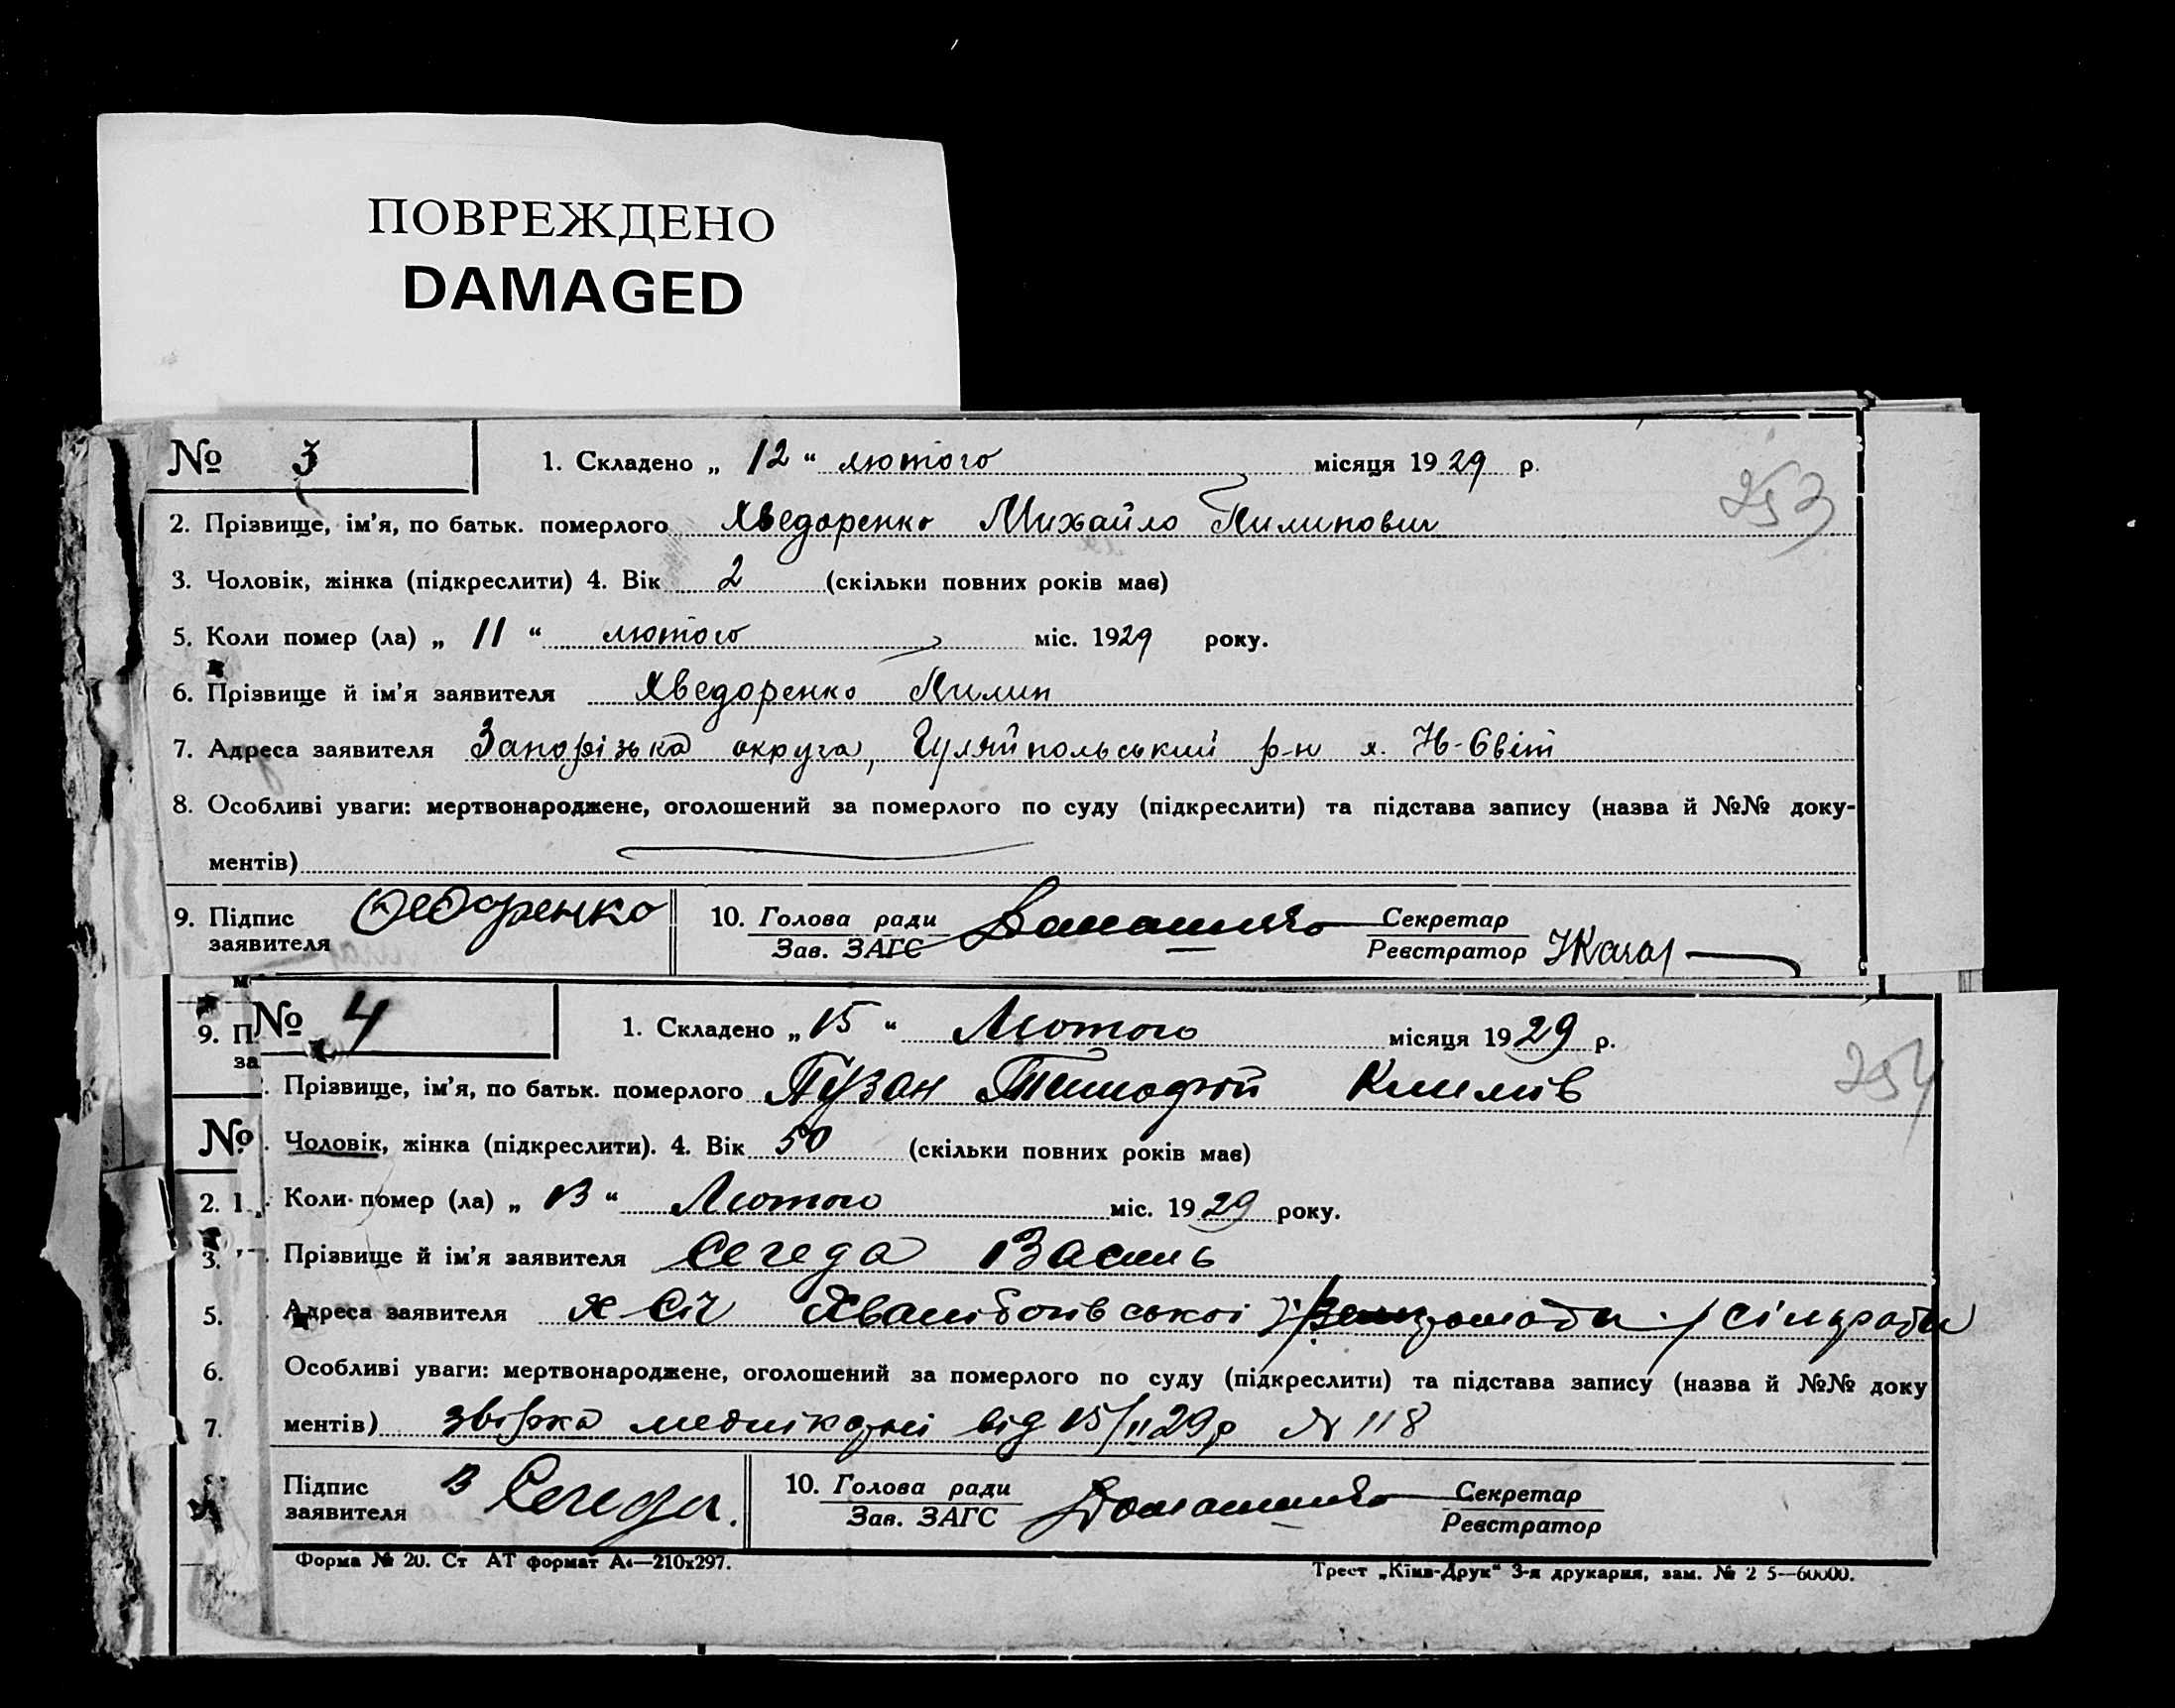 ПОВРЕЖДЕНО
DAMAGED
№ 3 1. Складено „ 12 “ лютого місяця 1929 р.
253
2. Прізвище, ім'я, по батьк. померлого Хведоренко Михайло Пилипович
3. Чоловік, жінка (підкреслити) 4. Вік 2 (скільки повних років має)
5. Коли помер (ла) „ 11 “ лютого міс. 1929 року.
6. Прізвище й ім'я заявителя Хведоренко Пилип
7. Адреса заявителя Запорізька округа, Гуляйпольський р-н х. Н-Світ
8. Особливі уваги: мертвонароджене, оголошений за померлого по суду (підкреслити) та підстава запису (назва й №№ доку-
ментів)
9. Підпис заявителя Федоренко 10. Голова ради Секретар
Зав. ЗАГС Реєстратор
№ 4 1. Складено „ 15 “ Лютого місяця 1929 р.
254
9. П
за
. Прізвище, ім'я, по батьк. померлого Пузан Тимофій Климів
№ . Чоловік, жінка (підкреслити). 4. Вік 50 (скільки повних років має)
2. . Коли помер (ла) „ 13 “ Лютого міс. 1929 року.
3. . Прізвище й ім'я заявителя Сегеда Василь
5. . Адреса заявителя х Січ сільради
6. Особливі уваги: мертвонароджене, оголошений за померлого по суду (підкреслити) та підстава запису (назва й №№ доку
7. ментів) від 15/II 29р № 118
Підпис заявителя В Сегеда. 10. Голова ради Секретар
Зав. ЗАГС Реєстратор
Форма № 20. Ст АТ формат А4—210х297. Трест „Київ-Друк“ 3-я друкарня, зам. № 2 5—60000.